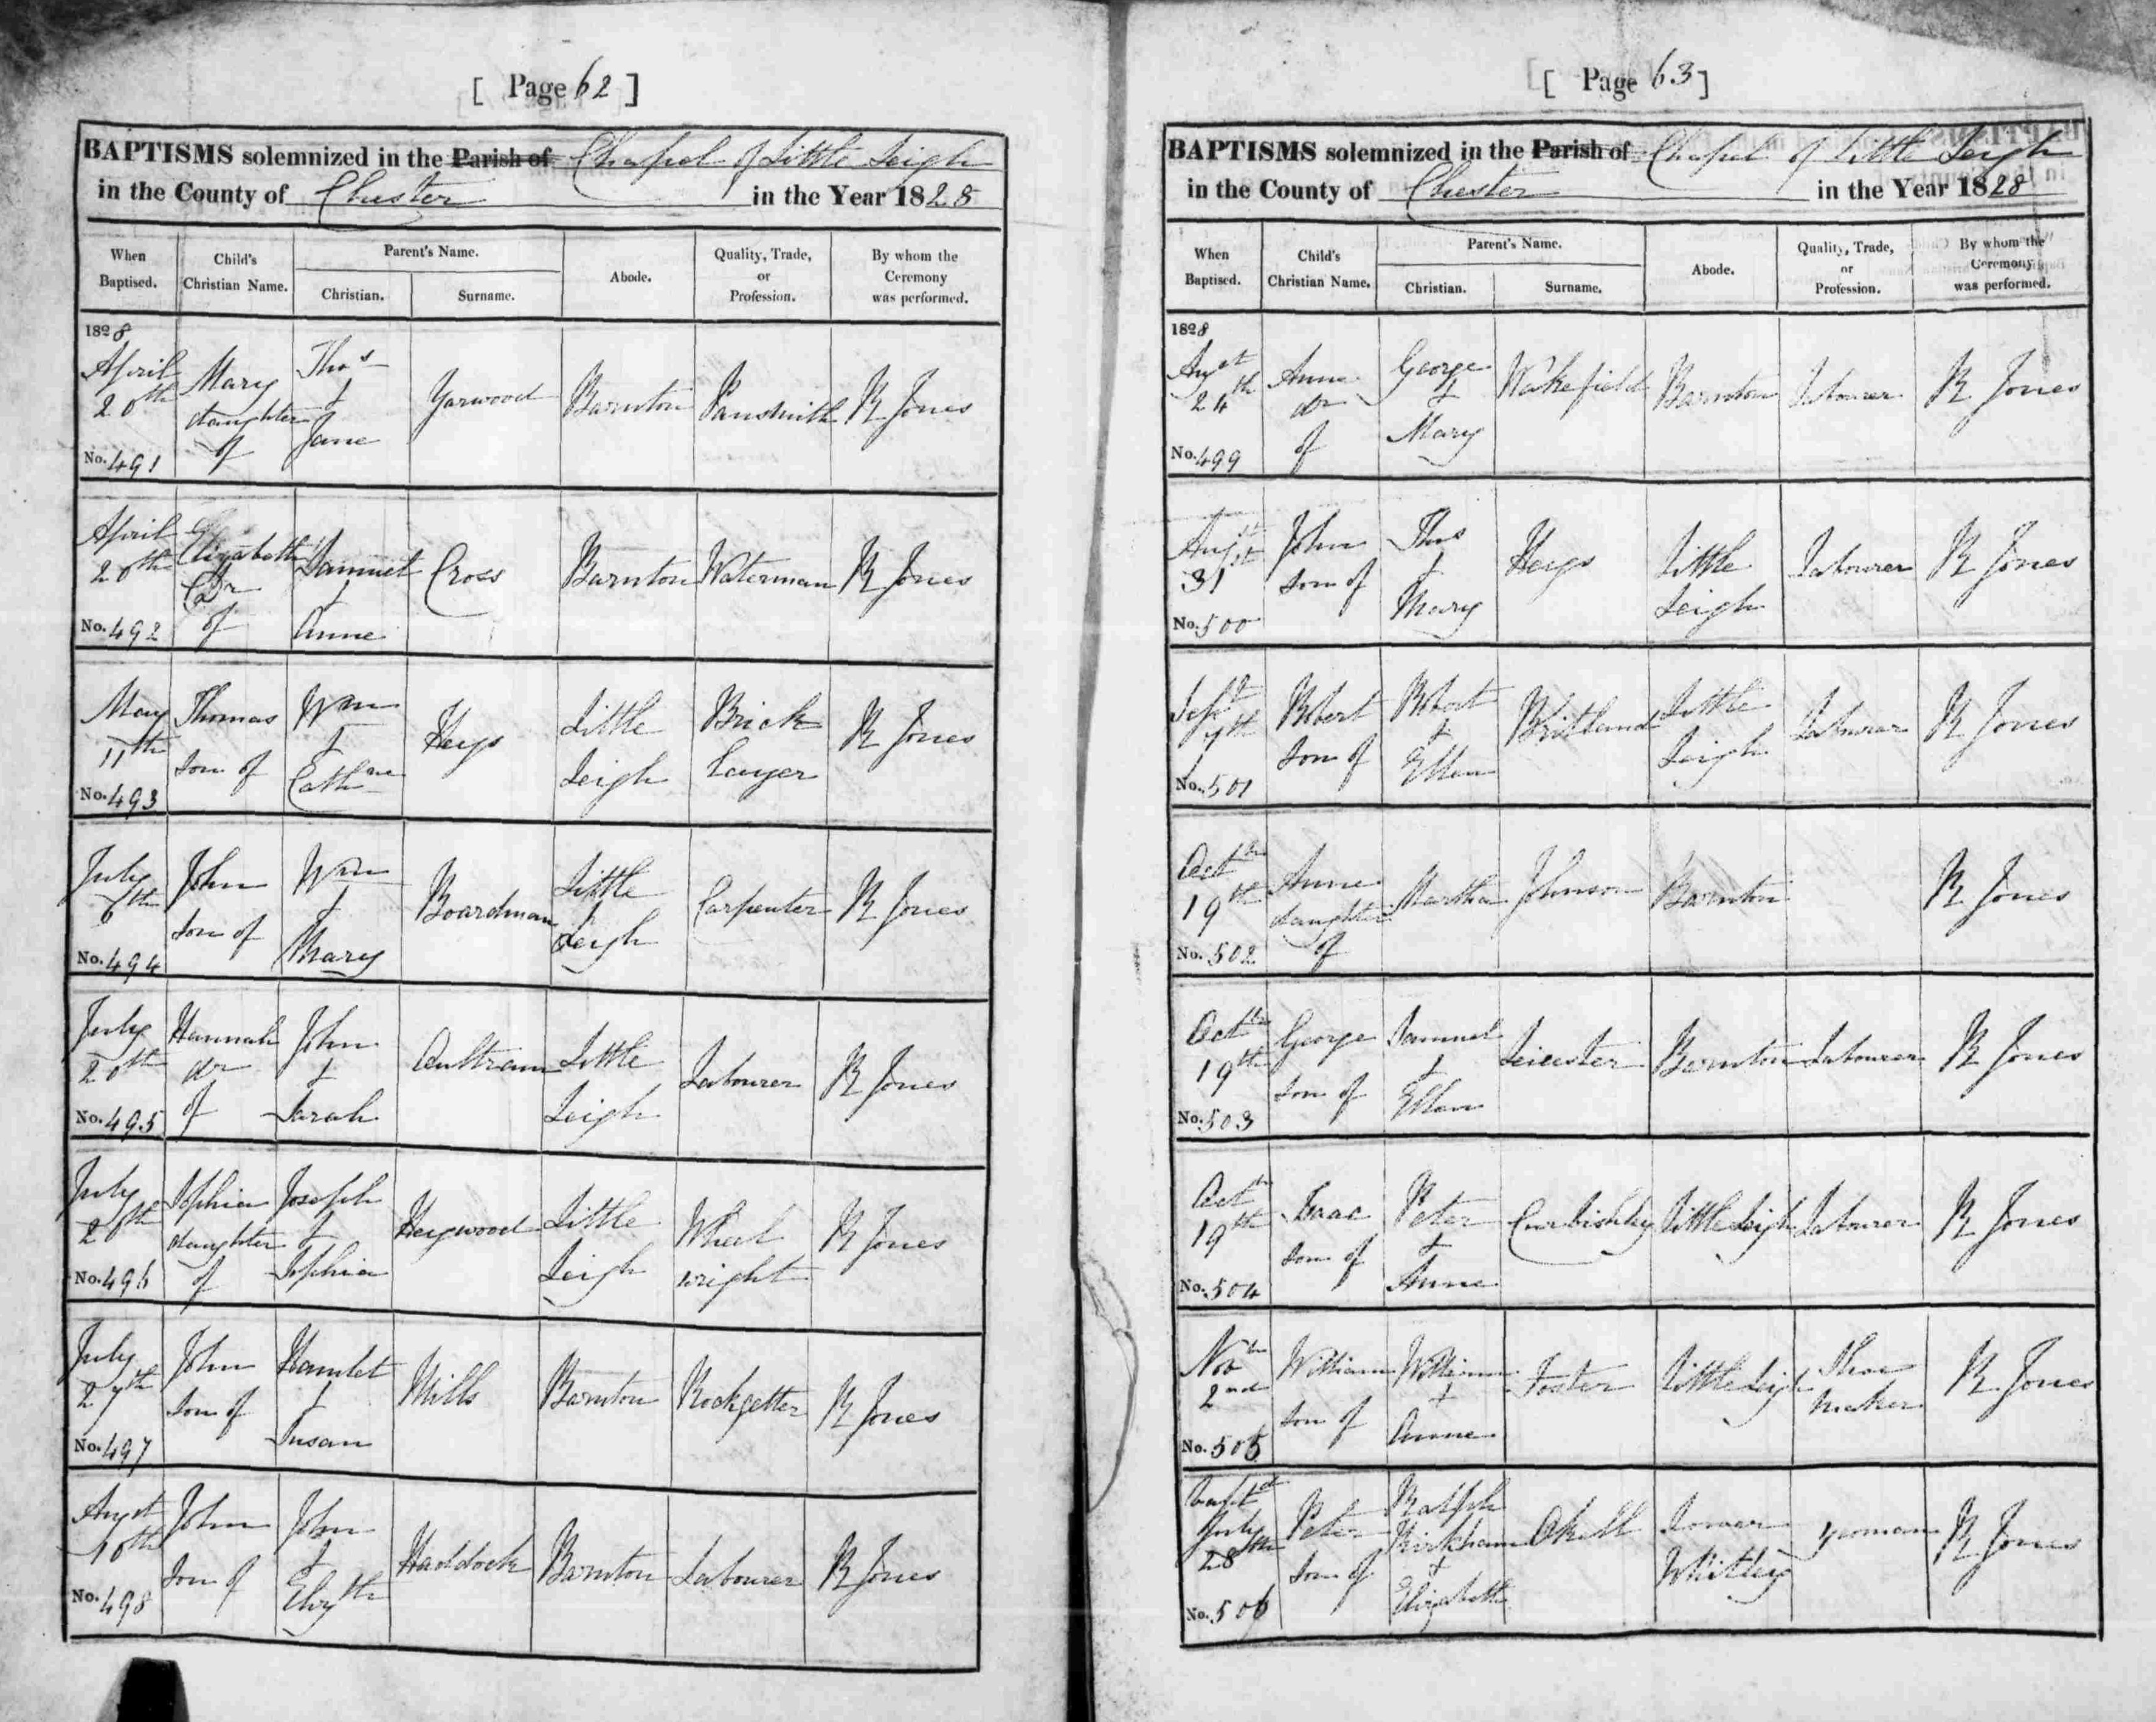 [ Page 62 ]
BAPTISMS solemnized in the Parish of Chapel of Little Leigh
in the County of Chester in the Year 1828
When Baptised. Child's Christian Name. Parent's Name. Christian. Surname. Abode. Quality, Trade, or Profession. By whom the Ceremony was performed.
1828
April 20th Mary daughter of Thos + Jane Yarwood Barnton Pansmith R Jones
No. 491
April 20th Elizabeth Dr of Samuel + Anne Cross Barnton Waterman R Jones
No. 492
May 11th Thomas Son of Wm + Cathne Heys Little Leigh Brick Layer R Jones
No. 493
July 6th John Son of Wm + Mary Boardman Little Leigh Carpenter R Jones
No. 494
July 20th Hannah dr of John + Sarah Aultram Little Leigh Labourer R Jones
No. 495
July 20th Sophia daughter of Joseph + Sophia Heywood Little Leigh Wheel wright R Jones
No. 496
July 27th John Son of Hamlet + Susan Mills Barnton Rockgetter R Jones
No. 497
Augst 10th John Son of John + Elizth Haddock Barnton Labourer R Jones
No. 498
[ Page 63 ]
BAPTISMS solemnized in the Parish of Chapel of Little Leigh
in the County of Chester in the Year 1828
When Baptised. Child's Christian Name. Parent's Name. Christian. Surname. Abode. Quality, Trade, or Profession. By whom the Ceremony was performed.
1828
Augst 24th Anne dr of George + Mary Wakefield Barnton Labourer R Jones
No. 499
Augst 31 John Son of Thos + Mary Heys Little Leigh Labourer R Jones
No. 500
Sept 7th Robert Son of Robert + Ellen Little Leigh Labourer R Jones
No. 501
Octbr 19th Anne daughter of Martha Johnson Barnton R Jones
No. 502
Octbr 19th George Son of Samuel + Ellen Leicester Barnton Labourer R Jones
No. 503
Octbr 19th Isaac Son of Peter + Anne Curbishley Little Leigh Labourer R Jones
No. 504
Novbr 2nd William Son of William + Anne Foster Little Leigh Shoe maker R Jones
No. 505
Baptd July 28th Peter Son of Ralph Kirkham + Elizabeth Okell Lower Whitley yeoman R Jones
No. 506